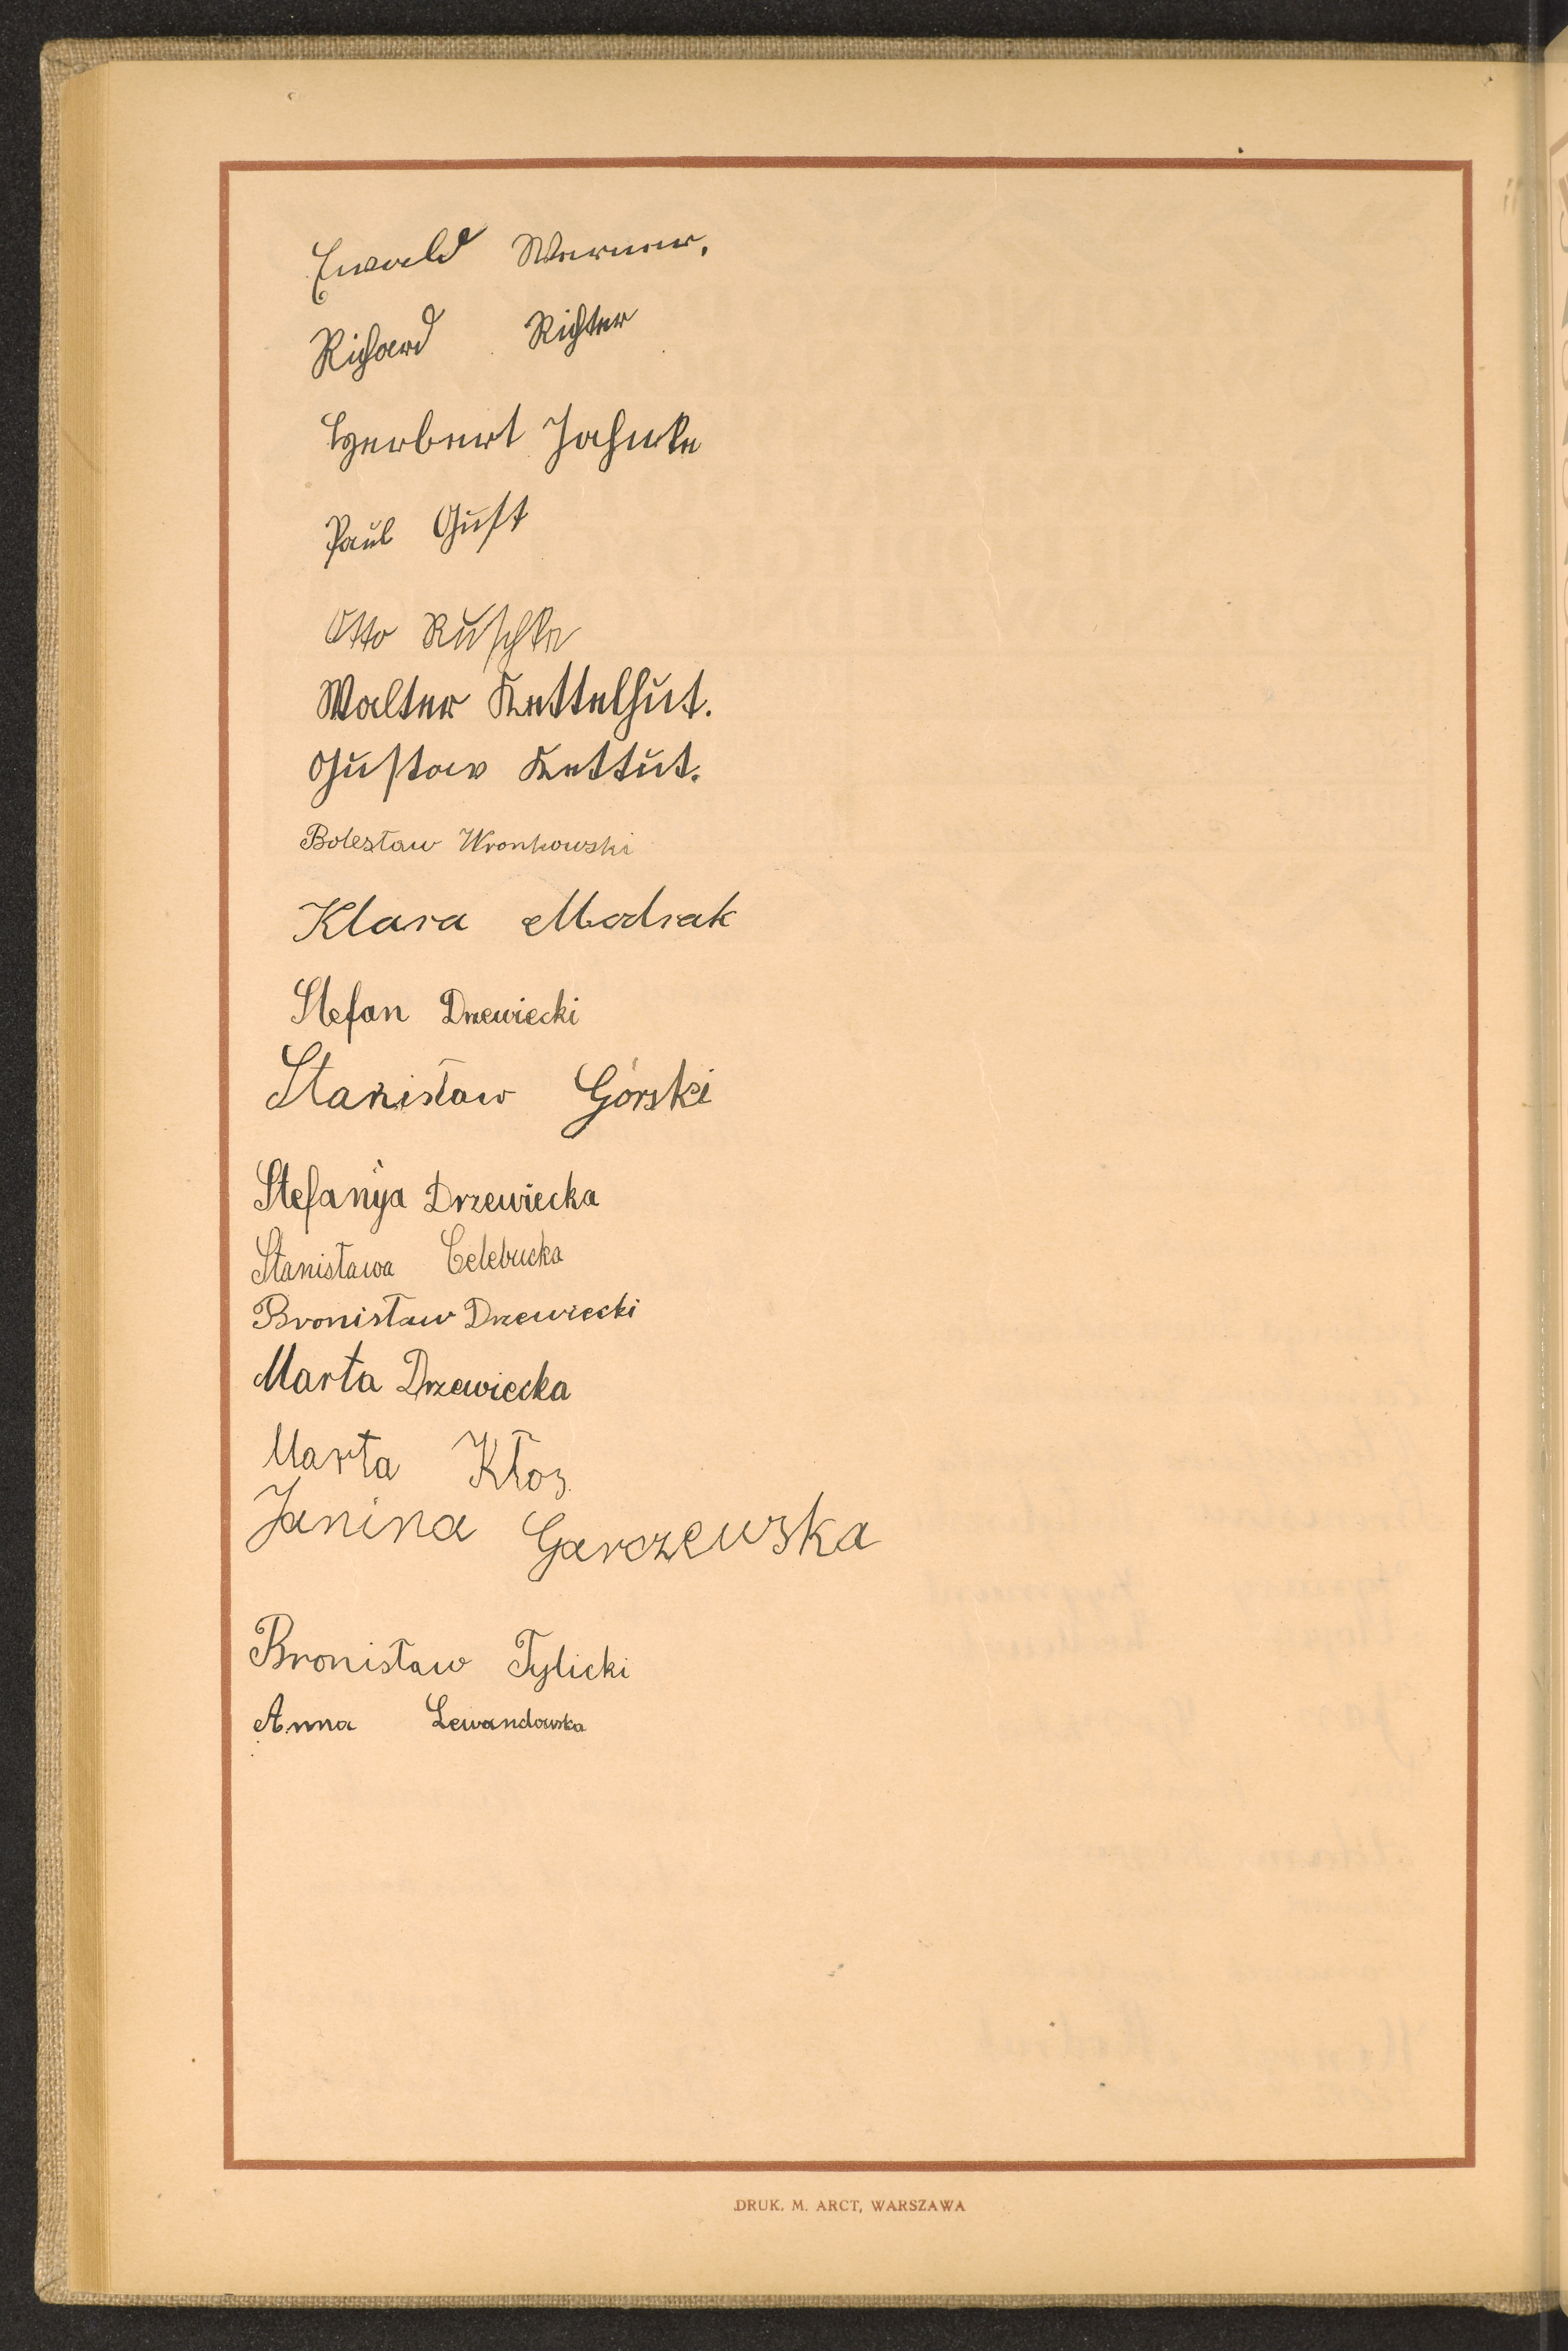 Ewald Werner.
Richard Richter
Herbert Jahnke
Paul Gust
Otto Ruschke
Walter Kettelhut.
Gustav Kettut.
Bolesław Wronkowski
Klara Modrak
Stefan Drzewiecki
Stanisław Górski
Stefanja Drzewiecka
Stanisława Celebucka
Bronisław Drzewiecki
Marta Drzewiecka
Marta Kłos
Janina Garczewska
Bronisław Tylicki
Anna Lewandowska
DRUK. M. ARCT, WARSZAWA